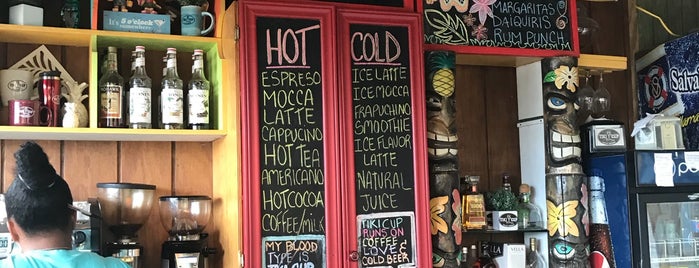 It's 5 o'clock
somewhere
HOT
ESPRESO
MOCCA
LATTE
CAPPUCINO
HOT TEA
AMERICANO
HOTCOCOA
COFFEE/MILK
MY BLOOD
TYPE IS
COLD
ICE LATTE
ICE MOCCA
FRAPUCHINO
SMOOTHIE
ICE FLAVOR
LATTE
NATURAL
JUICE
TIKI CUP
RUNS ON
COFFEE
LOVE &
COLD BEER
MARGARITAS
DAIQUIRIS
RUM PUNCH
Salva